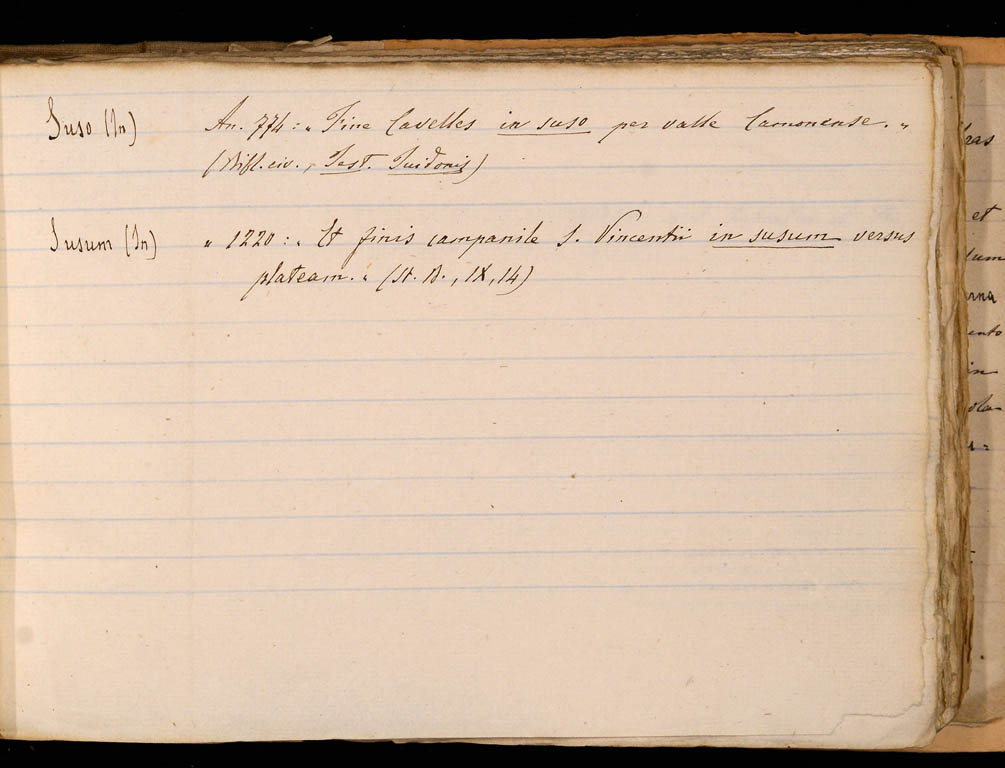 Suso (In) An. 774: „ Fine Cavelles in suso per valle Camonense. „
(Bibl. civ., Test. Tuidonis)
Susum (In) „ 1220: „ Et finis campanile S. Vincentii in susum versus
plateam. „ (St. B., IX, 14)
ras
et
lum
rna
ento
in